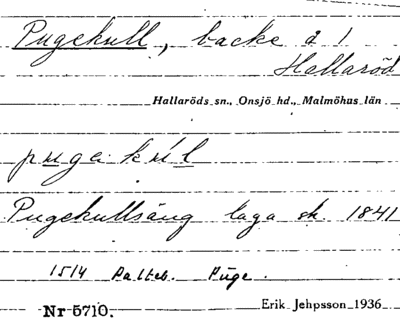 Pugekull, backe å 1
Hallaröd
Hallaröds sn., Onsjö hd., Malmöhus län
pugakul
Pugekullsäng laga sk. 1841
1514 Palteb. Puge.
Nr 5710. Erik Jehpsson 1936